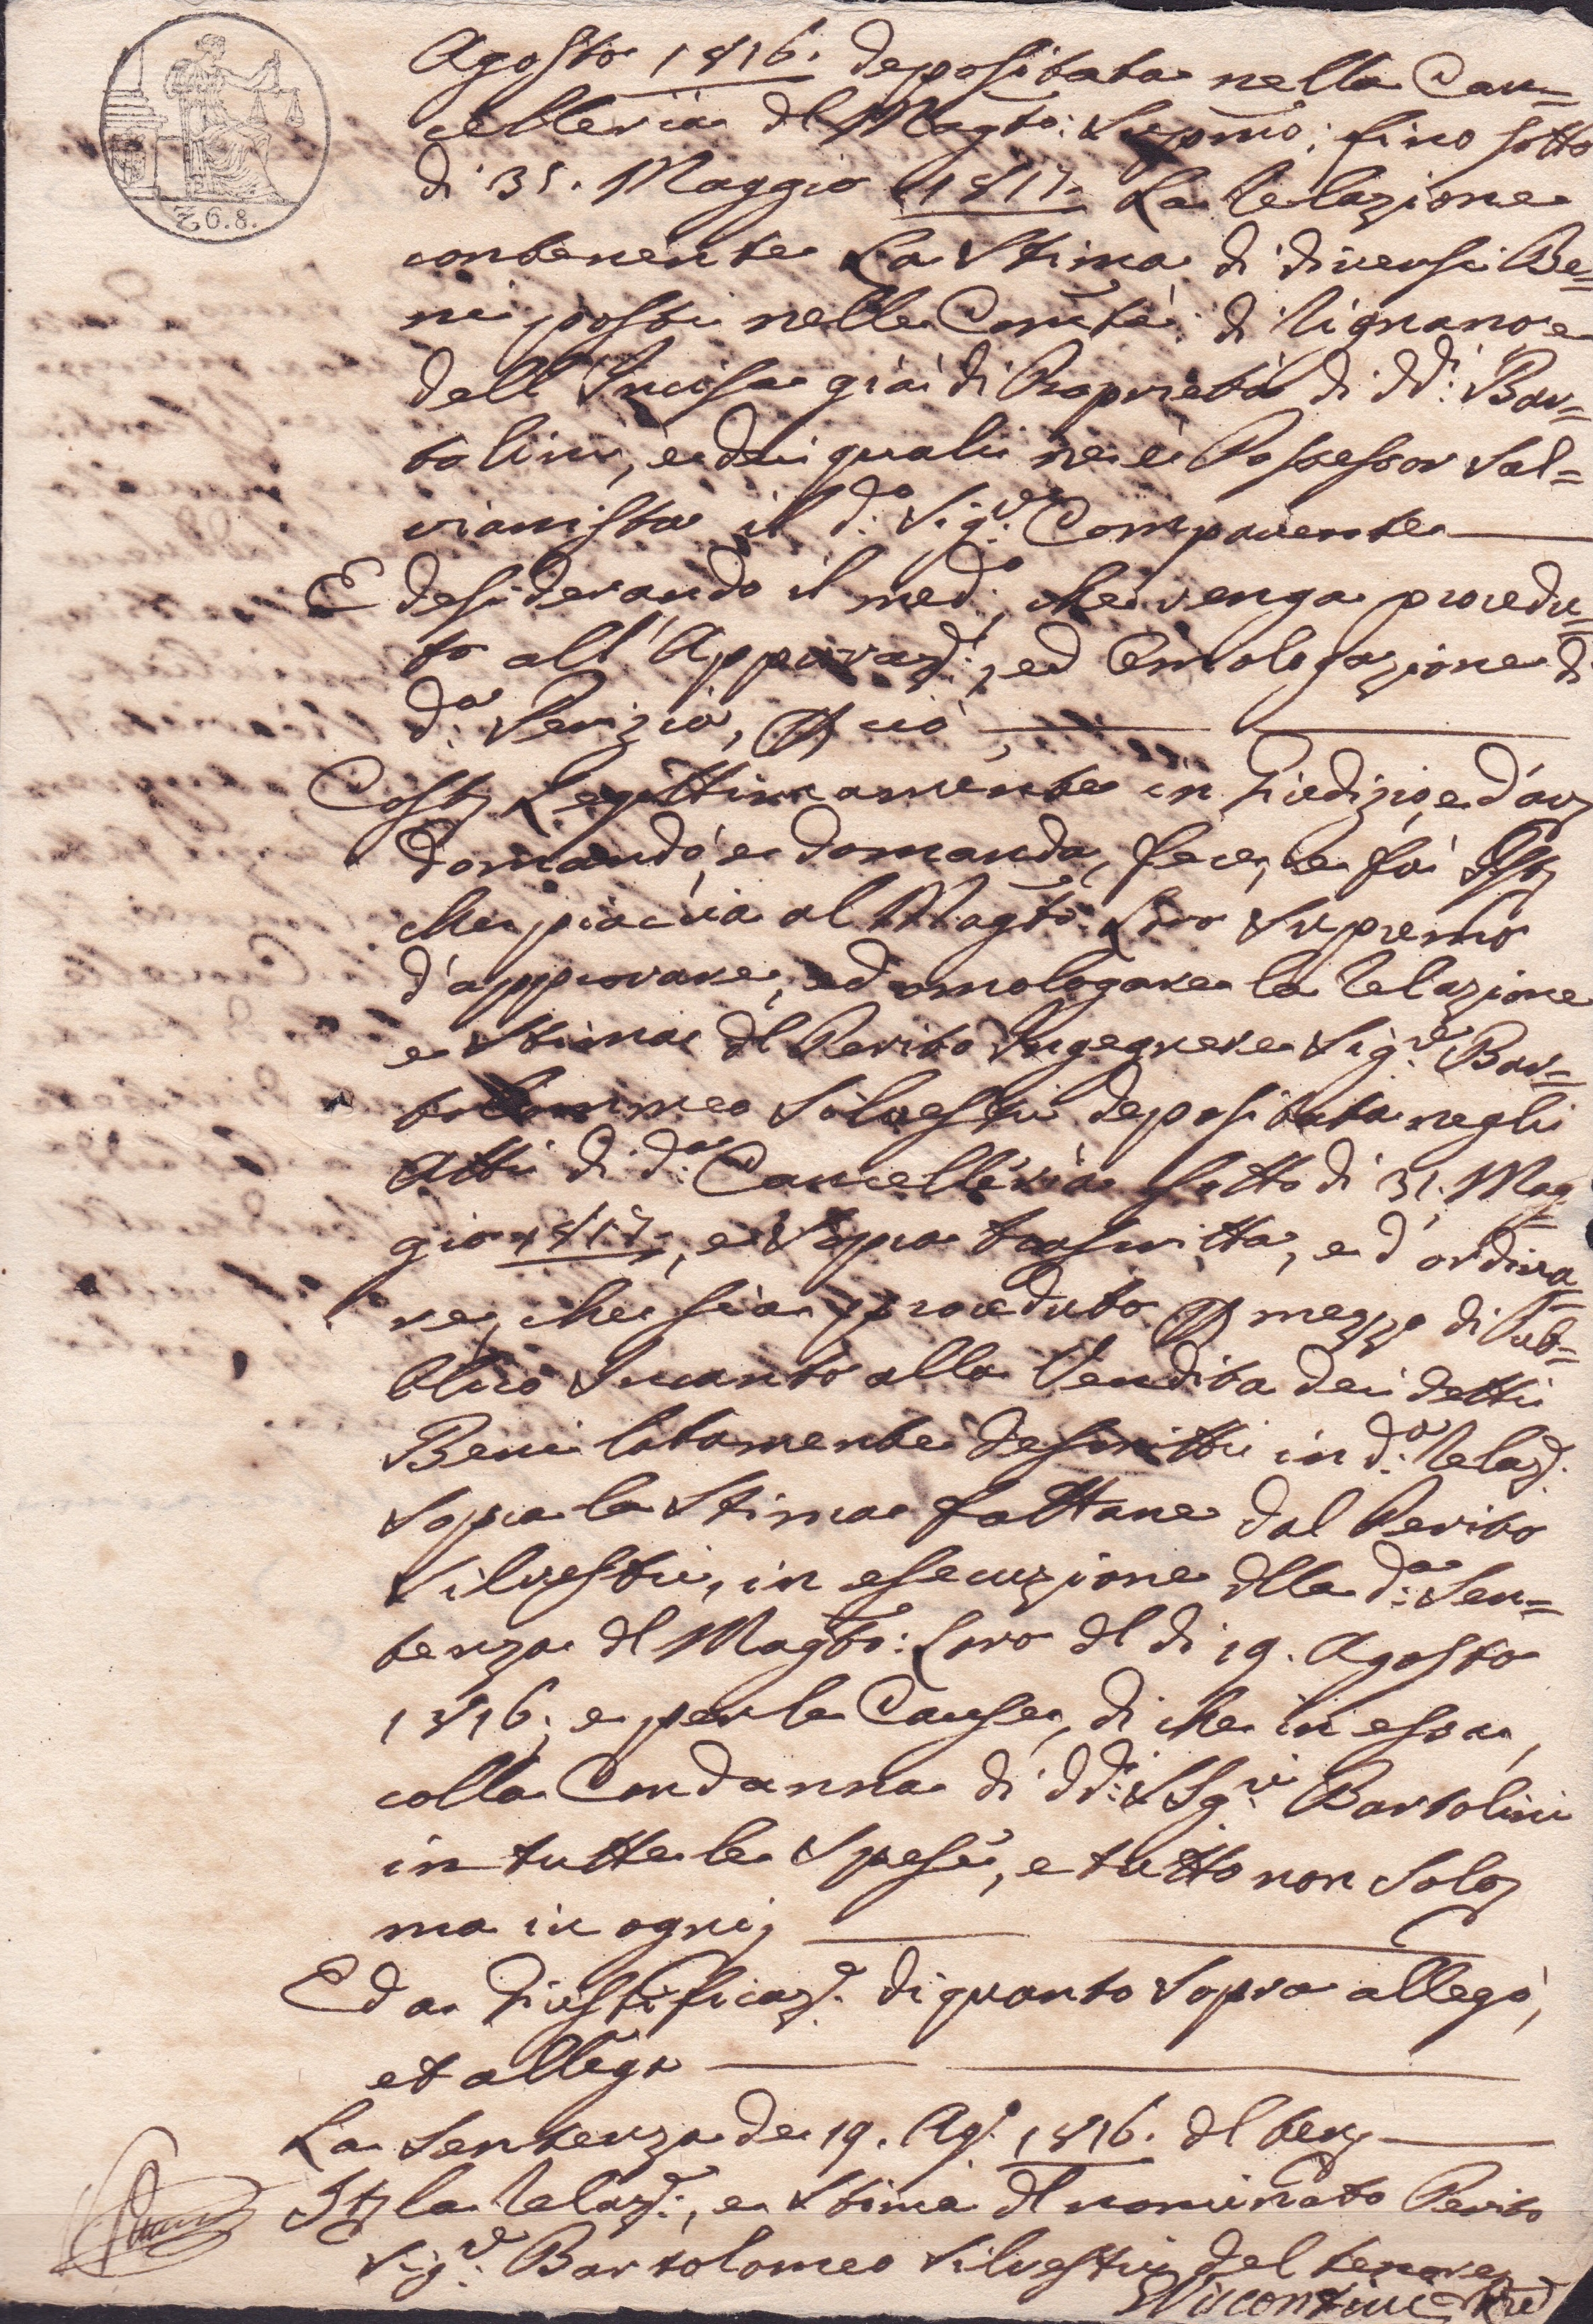 Agosto 1816. depositata nella Can=
celleria del Magto: Supmo: fino sotto
dì 31. Maggio 1817. La Relazione
contenente La Stima di diversi Be=
ni posti nelle Comtà: di Rignano e
dell'Incisa già di Proprietà di dd.i Bar=
tolini, e dei quali ne è Possessor Sal=
vianista il d.o Sig.re Comparente
E desiderando il med.o, che venga procedu=
to all'Approvaz.e, ed Emologazione di
d.a Perizia, P ciò
Costz Legittimamente in Giudizio, e d'avz
domandò, e domanda, fece, e fa Istz
che piaccia al Magto: Loro Supremo
d'approvare, ed omologare la Relazione
e Stima del Perito Ingegnere Sig.re Bar=
tolommeo Silvestri depositata negli
Atti di d.a Cancelleria sotto dì 31. Mag=
gio 1817., e Sopra trascritta, e d'ordina=
re, che sia proceduto P mezzo di Pub=
blico Incanto alla Vendita dei detti
Beni latamente descritti in d.a Relaz.e
Sopra la Stima fattane dal Perito
Silvestri, in esecuzione della d.a Sen=
tenza del Magto: Loro del dì 19. Agosto
1816; e per le Cause, di che in essa,
colla Condanna di dd.i SSig.ri Bartolini
in tutte le Spese, e tutto non Soloz
ma in ogni;
Ed a Giustificaz.e di quanto Sopra allegò,
et allega
La Sentenza de 19. Ag.o 1816. del tenz
Itz la Relaz.e, e Stima del nominato Perito
Sig.re Bartolomeo Silvestri del tenorez
Z6.8.